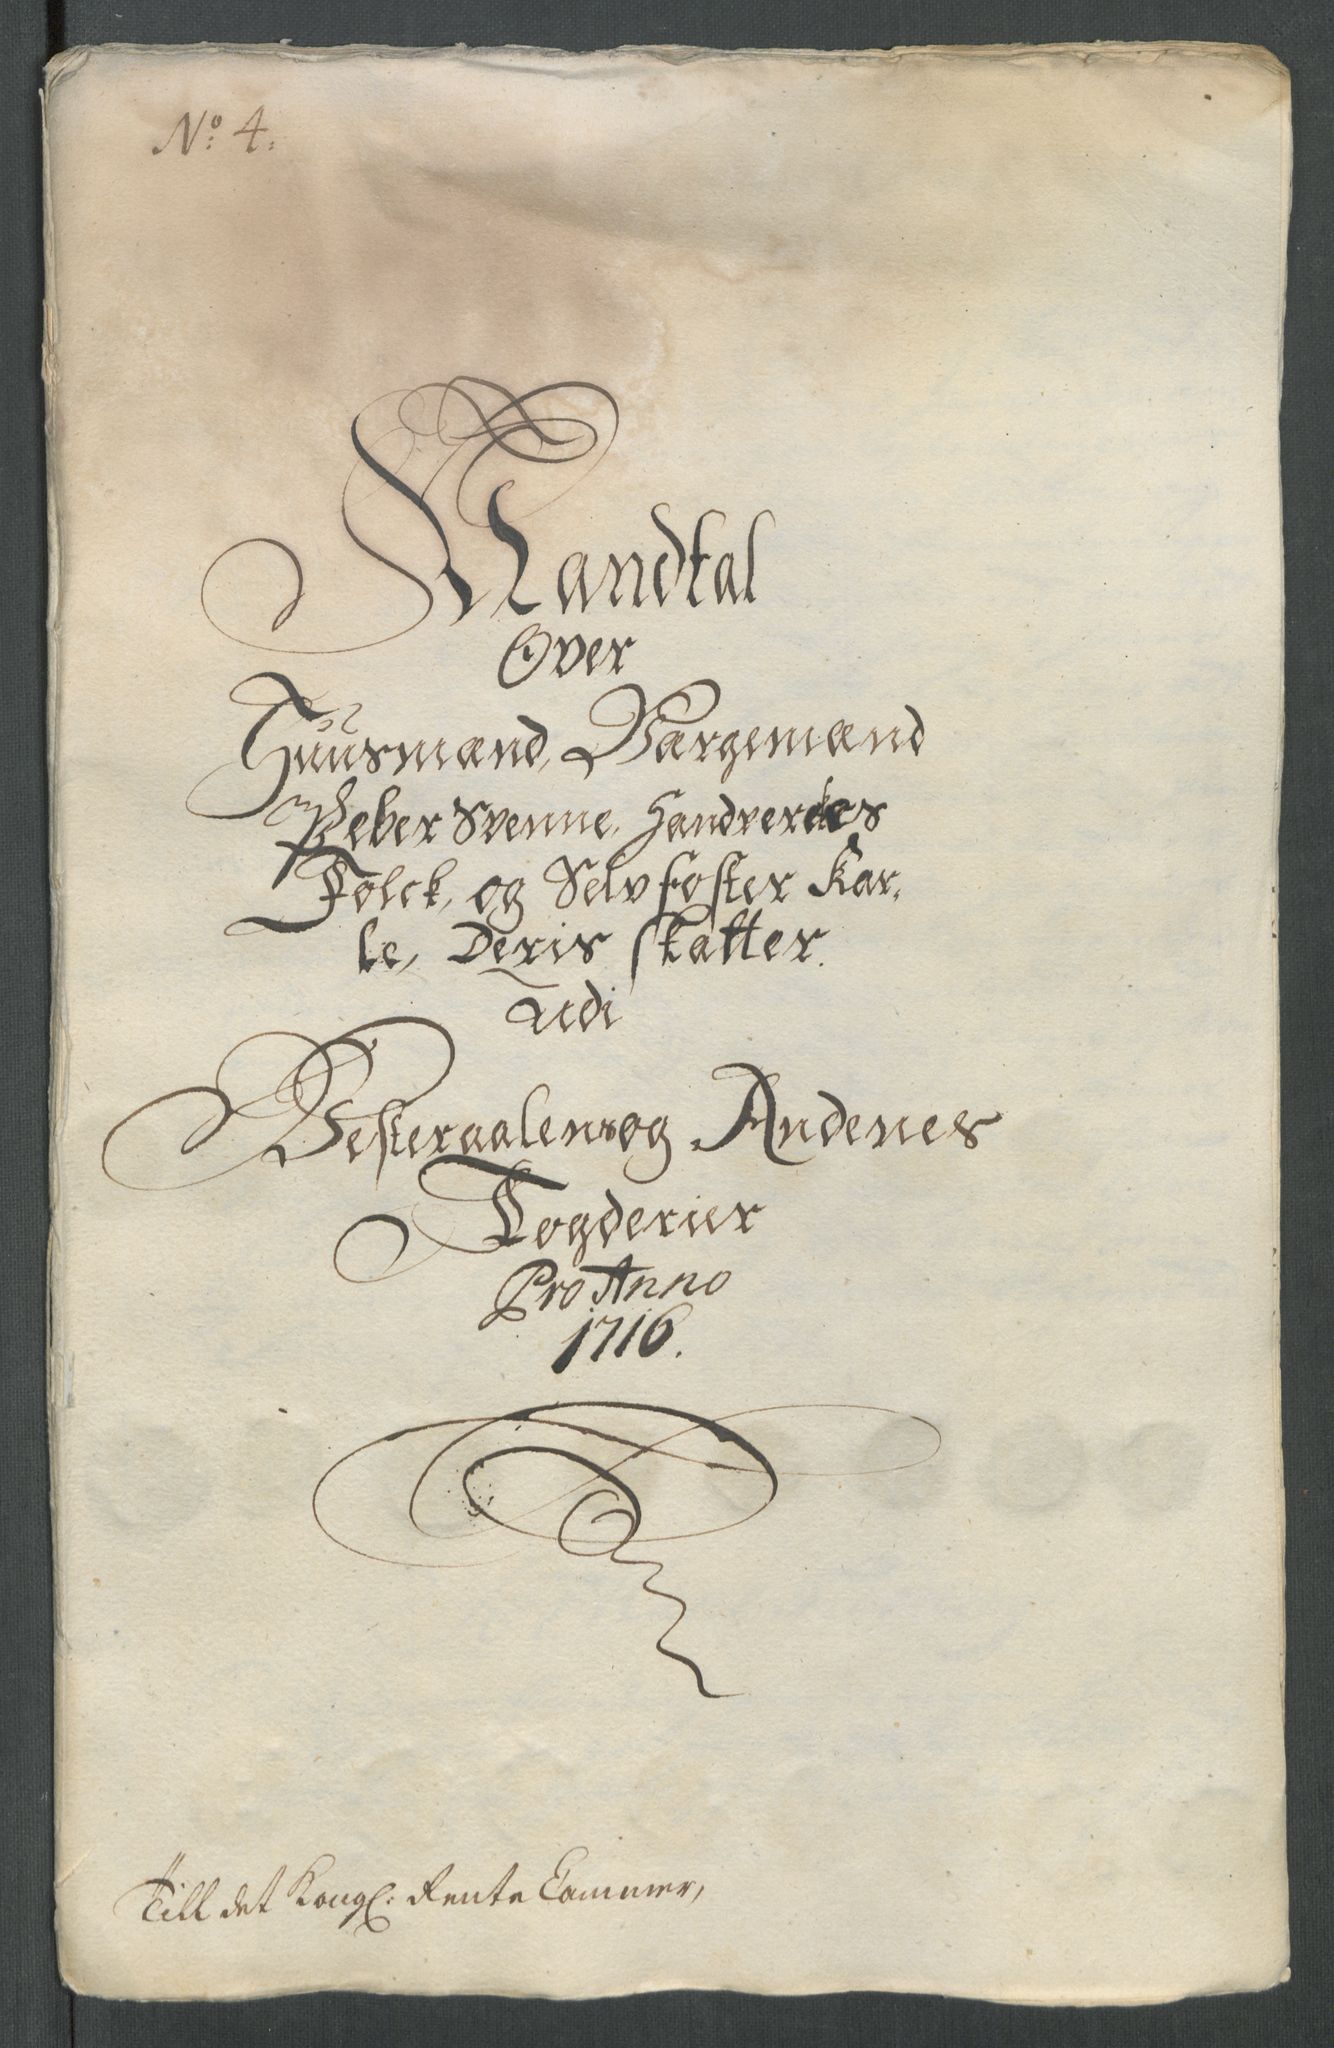 No: 4.
Mandtal
Over
Huusmænd, Bargemænd
Peber Svenne, Handverckes
Folck, og Selvfoster Kar,
le, Deris Skatter.
Udi
Vesteraalens og Andenes
Fogderier
Pro Anno
1716.
Till det Kongl: Rente Cammer,